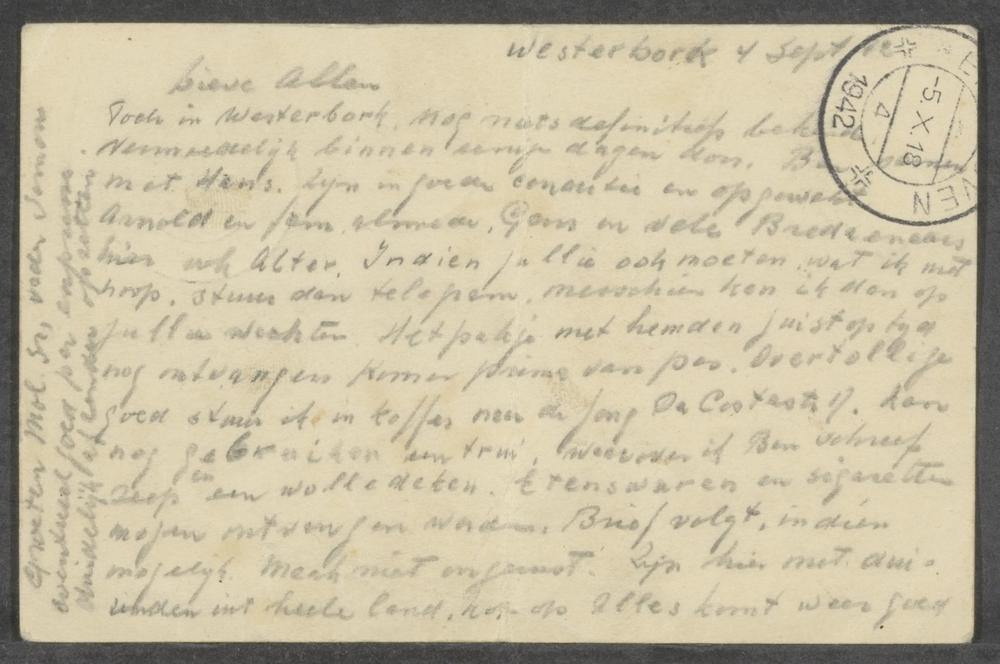 Westerbork 4 Sept
Lieve Allen
Toch in Westerbork. nog niets definitiefs bekend
Vermoedelijk binnen eenige dagen don. Ben samen
met Hans. Zijn in goede conditie en opgewekt
Arnold en fam. alweer, Gans en vele Bredanaars
hier ook Alter. Indien jullie ook moeten, wat ik niet
hoop, stuur dan telegram, misschien kan ik dan op
jullie wachten. Het pakje met hemden juist op tijd
nog ontvangen komen prima van pas. Overtollige
goed stuur ik in koffer naar de Jong Da Costastr
nog gebruiken een trui, waarover ik Ben schreef
zeep en een wolle deken. Etenswaren en sigaretten
mogen ontvangen worden. Brief volgt, indien
mogelijk. Maak niet ongerust. Zijn hier met dui-
zenden uit heele land. Kop op alles komt weer goed
Groeten Mol. Sis, vader Simons
eventueel goed per expresse
duidelijk afzender opzetten
-5.X.18
4
1942
VEN